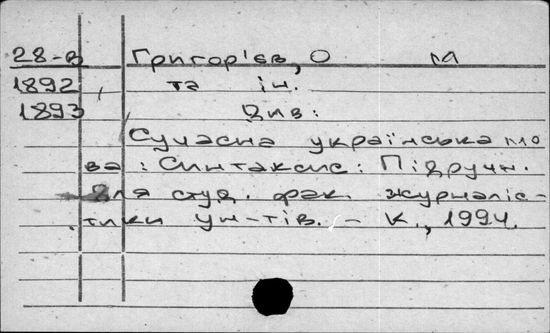 28-в Григор'єв, О М
1892, та ін.
1893 Див:
Сучасна українська мо
ва: Синтаксис: Підручн.
для студ. фак. журналіс-
тики ун-тів. - К., 1994.